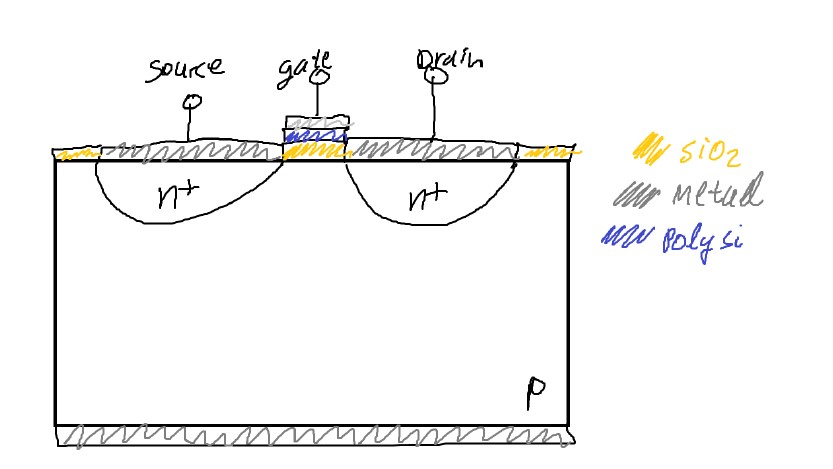 source
gate
Drain
n+
n+
p
SiO2
Metal
Poly si